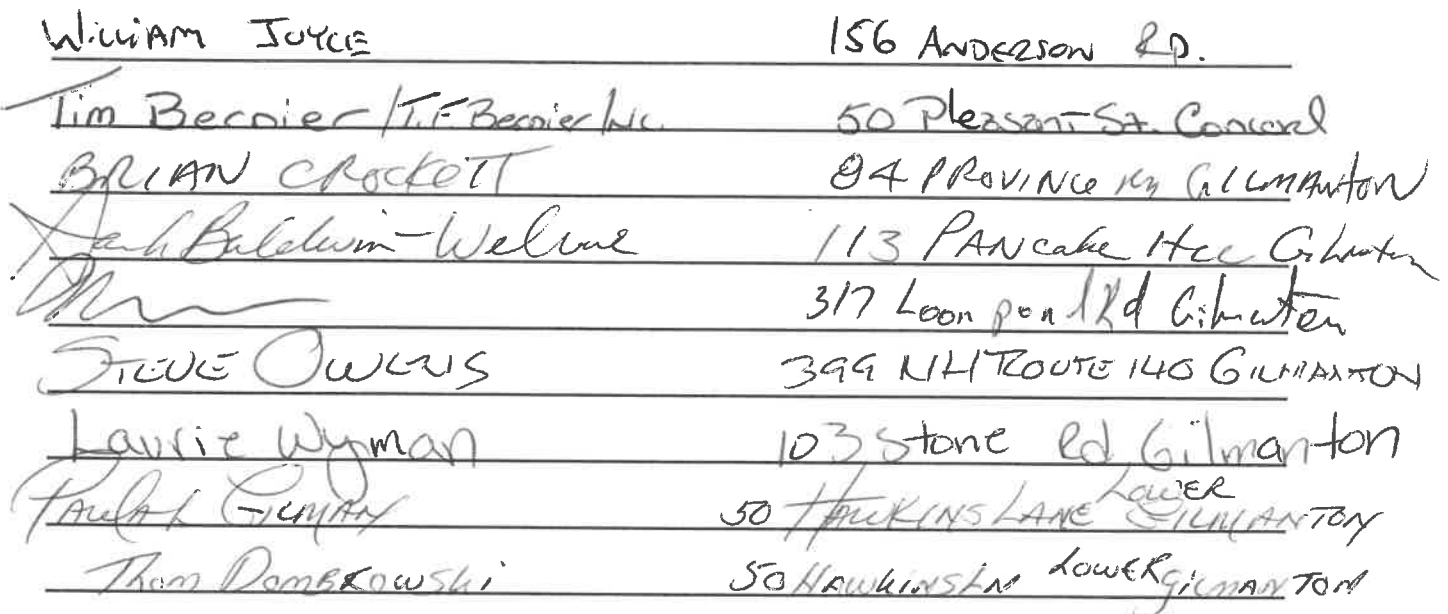 WILLIAM JOYCE 156 ANDERSON RD.
Tim Bernier / T.F. Bernier Inc. 50 Pleasant St. Concord
BRIAN CROCKETT 84 PROVINCE RD GILMANTON
Baldwin-Welcome 113 PANcake Hill Gilmanton
317 Loon pond Rd Gilmanton
STEVE OWENS 399 NH ROUTE 140 GILMANTON
Laurie Wyman 103 Stone Rd Gilmanton
PAULA L GILMAN 50 HAWKINS LANE LOWER GILMANTON
Thom DOMBROWSKI 50 HAWKINS LN LOWER GILMANTON